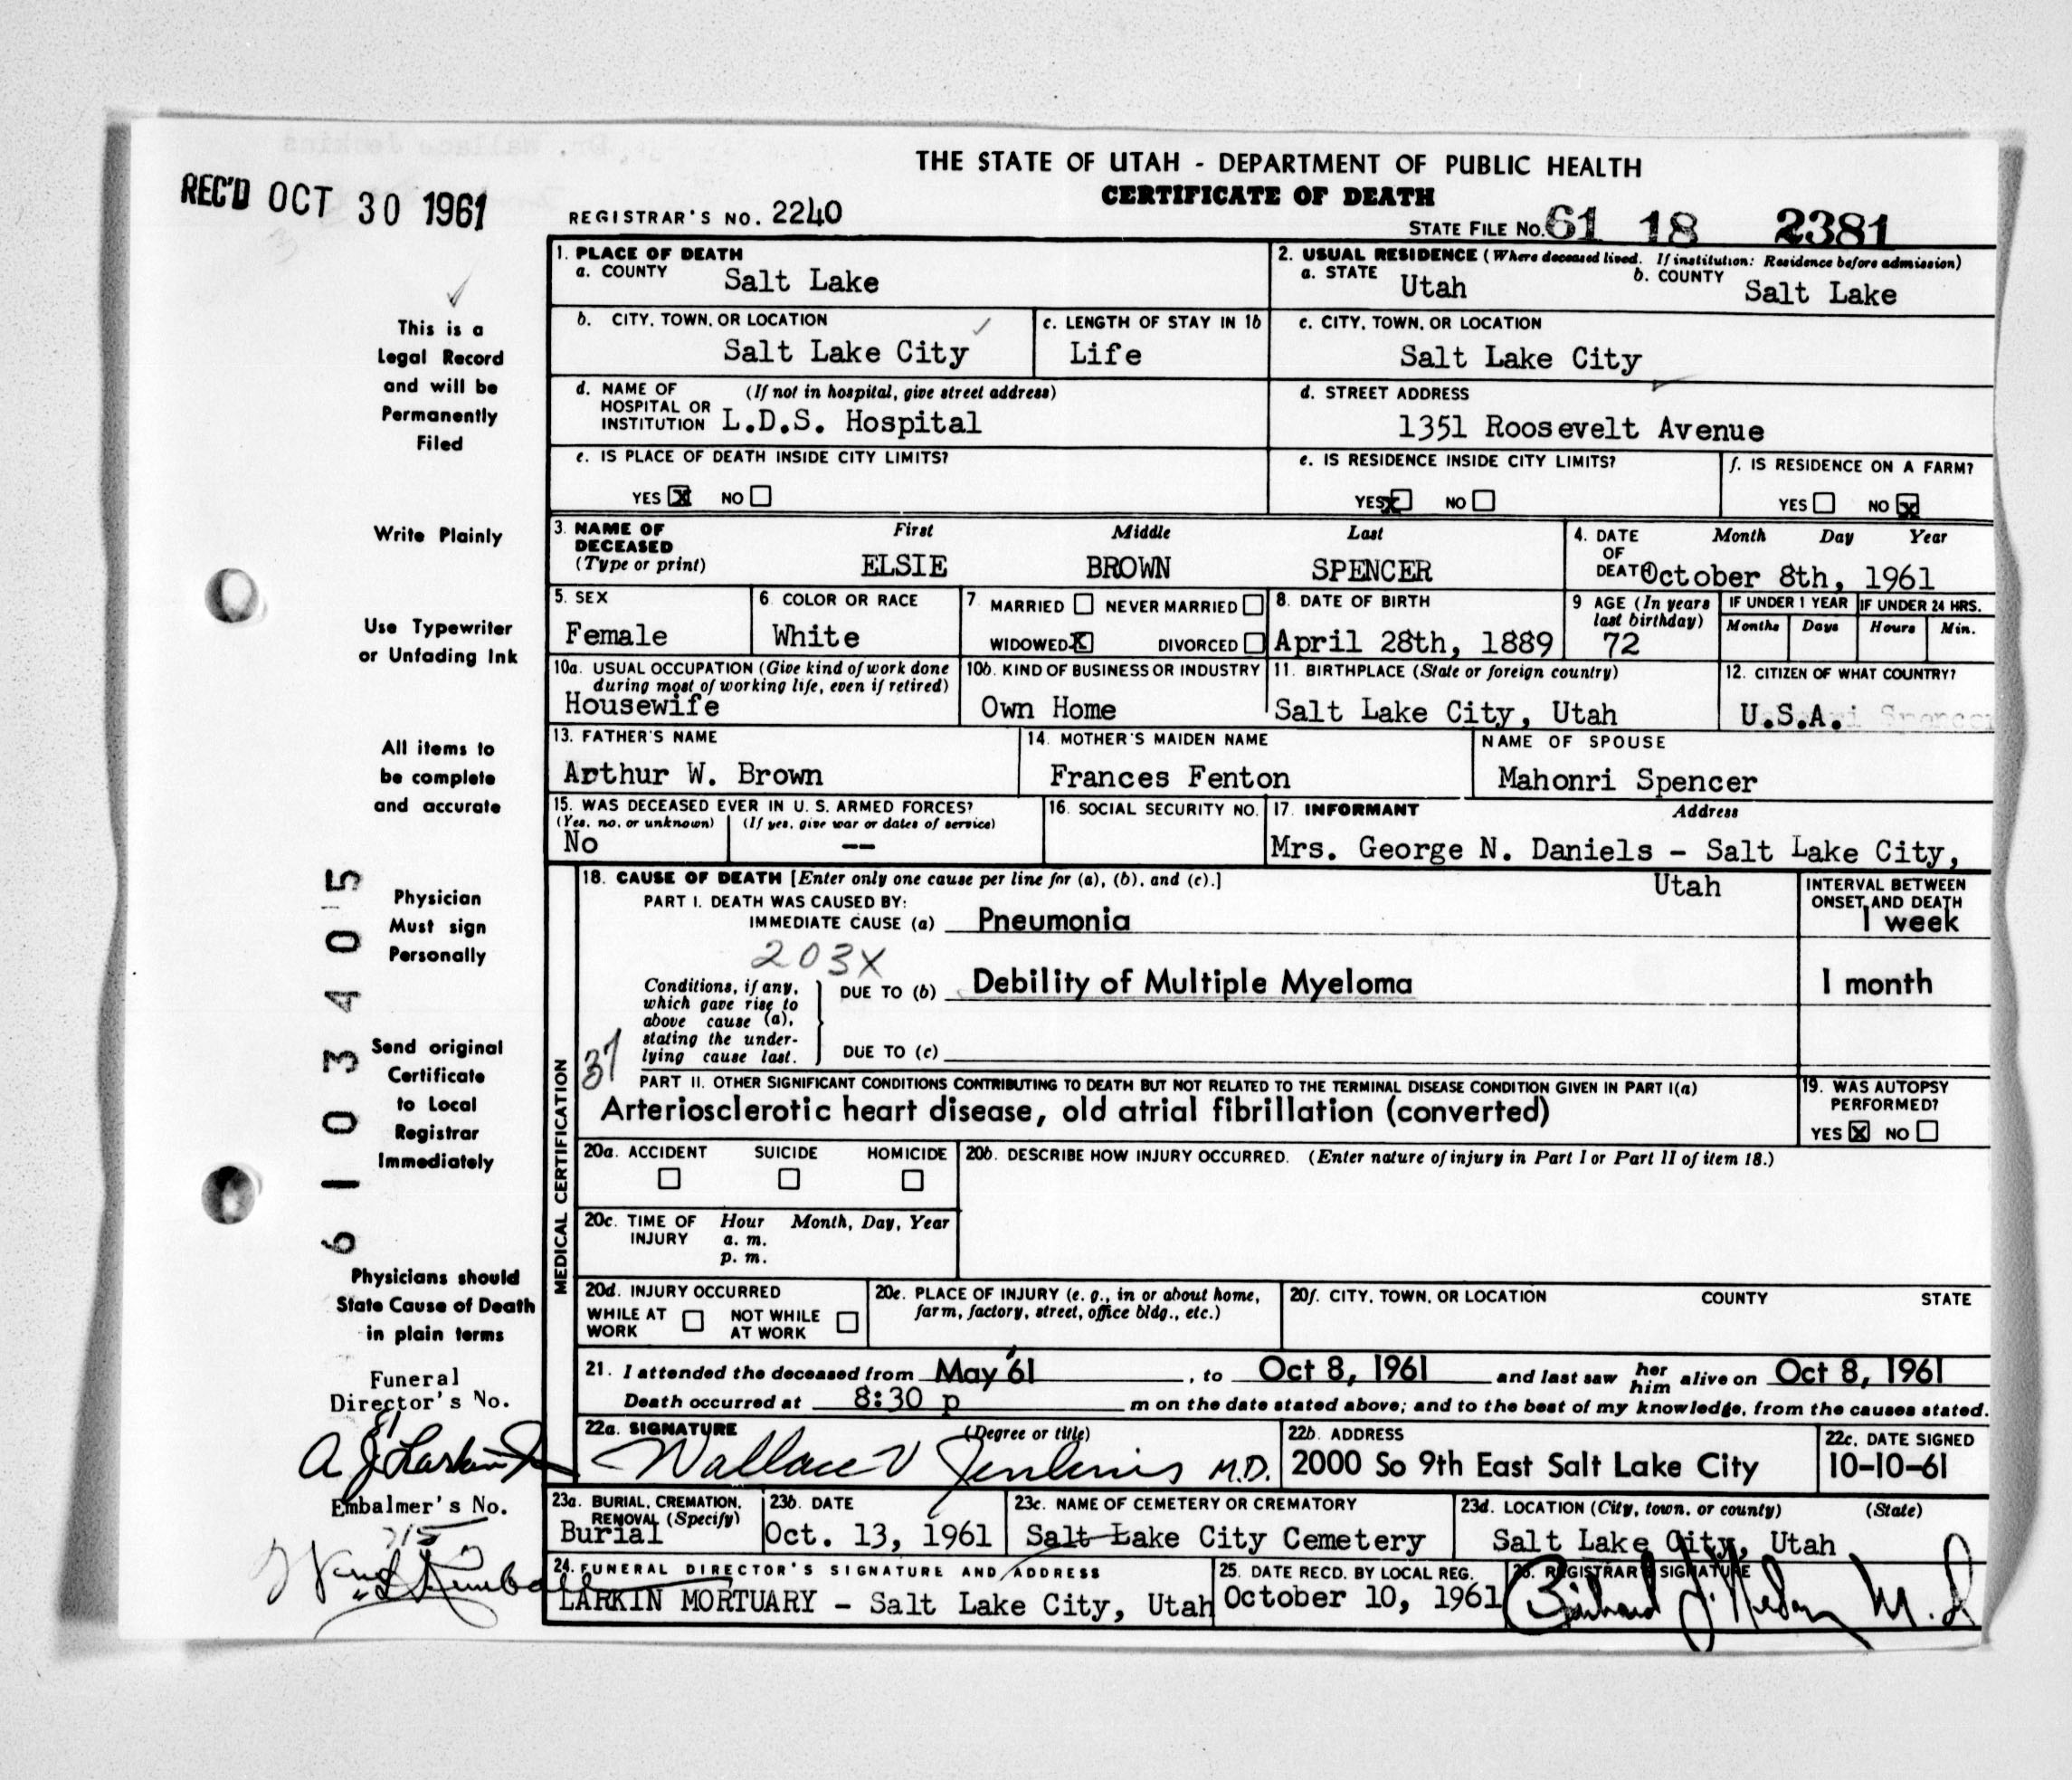 THE STATE OF UTAH - DEPARTMENT OF PUBLIC HEALTH
CERTIFICATE OF DEATH
REC'D OCT 30 1961
REGISTRAR'S NO. 2240
STATE FILE NO. 61 18 2381
1. PLACE OF DEATH
a. COUNTY Salt Lake
2. USUAL RESIDENCE (Where deceased lived. If institution: Residence before admission)
a. STATE Utah b. COUNTY Salt Lake
b. CITY, TOWN, OR LOCATION
Salt Lake City
c. LENGTH OF STAY IN 1b
Life
c. CITY, TOWN, OR LOCATION
Salt Lake City
d. NAME OF (If not in hospital, give street address)
HOSPITAL OR
INSTITUTION L.D.S. Hospital
d. STREET ADDRESS
1351 Roosevelt Avenue
e. IS PLACE OF DEATH INSIDE CITY LIMITS?
YES X NO
e. IS RESIDENCE INSIDE CITY LIMITS?
YES X NO
f. IS RESIDENCE ON A FARM?
YES NO X
3. NAME OF First Middle Last
DECEASED
(Type or print) ELSIE BROWN SPENCER
4. DATE Month Day Year
OF
DEATH October 8th, 1961
5. SEX
Female
6. COLOR OR RACE
White
7. MARRIED NEVER MARRIED
WIDOWED X DIVORCED
8. DATE OF BIRTH
April 28th, 1889
9 AGE (In years
last birthday)
72
IF UNDER 1 YEAR
Months Days
IF UNDER 24 HRS.
Hours Min.
10a. USUAL OCCUPATION (Give kind of work done
during most of working life, even if retired)
Housewife
10b. KIND OF BUSINESS OR INDUSTRY
Own Home
11. BIRTHPLACE (State or foreign country)
Salt Lake City, Utah
12. CITIZEN OF WHAT COUNTRY?
U.S.A.
13. FATHER'S NAME
Arthur W. Brown
14. MOTHER'S MAIDEN NAME
Frances Fenton
NAME OF SPOUSE
Mahonri Spencer
15. WAS DECEASED EVER IN U. S. ARMED FORCES?
(Yes, no, or unknown) (If yes, give war or dates of service)
No --
16. SOCIAL SECURITY NO.
17. INFORMANT Address
Mrs. George N. Daniels - Salt Lake City,
Utah
MEDICAL CERTIFICATION
18. CAUSE OF DEATH [Enter only one cause per line for (a), (b), and (c).]
PART I. DEATH WAS CAUSED BY:
IMMEDIATE CAUSE (a) Pneumonia
INTERVAL BETWEEN
ONSET AND DEATH
1 week
203X
Conditions, if any,
which gave rise to
above cause (a),
stating the under-
lying cause last.
DUE TO (b) Debility of Multiple Myeloma
1 month
DUE TO (c)
37
PART II. OTHER SIGNIFICANT CONDITIONS CONTRIBUTING TO DEATH BUT NOT RELATED TO THE TERMINAL DISEASE CONDITION GIVEN IN PART I(a)
Arteriosclerotic heart disease, old atrial fibrillation (converted)
19. WAS AUTOPSY
PERFORMED?
YES X NO
20a. ACCIDENT SUICIDE HOMICIDE
20b. DESCRIBE HOW INJURY OCCURRED. (Enter nature of injury in Part I or Part II of item 18.)
20c. TIME OF Hour Month, Day, Year
INJURY a. m.
p. m.
20d. INJURY OCCURRED
WHILE AT NOT WHILE
WORK AT WORK
20e. PLACE OF INJURY (e. g., in or about home,
farm, factory, street, office bldg., etc.)
20f. CITY, TOWN, OR LOCATION COUNTY STATE
21. I attended the deceased from May '61, to Oct 8, 1961 and last saw her him alive on Oct 8, 1961
Death occurred at 8:30 p m on the date stated above; and to the best of my knowledge, from the causes stated.
22a. SIGNATURE (Degree or title)
Wallace V Jenkins M.D.
22b. ADDRESS
2000 So 9th East Salt Lake City
22c. DATE SIGNED
10-10-61
23a. BURIAL, CREMATION,
REMOVAL (Specify)
Burial
23b. DATE
Oct. 13, 1961
23c. NAME OF CEMETERY OR CREMATORY
Salt Lake City Cemetery
23d. LOCATION (City, town, or county) (State)
Salt Lake City, Utah
24. FUNERAL DIRECTOR'S SIGNATURE AND ADDRESS
LARKIN MORTUARY - Salt Lake City, Utah
25. DATE RECD. BY LOCAL REG.
October 10, 1961
26. REGISTRAR'S SIGNATURE
M.D
This is a
Legal Record
and will be
Permanently
Filed
Write Plainly
Use Typewriter
or Unfading Ink
All items to
be complete
and accurate
Physician
Must sign
Personally
Send original
Certificate
to Local
Registrar
Immediately
Physicians should
State Cause of Death
in plain terms
6 1 0 3 4 0 5
Funeral
Director's No.
81
A J Larkin Jr
Embalmer's No.
715
Kimball